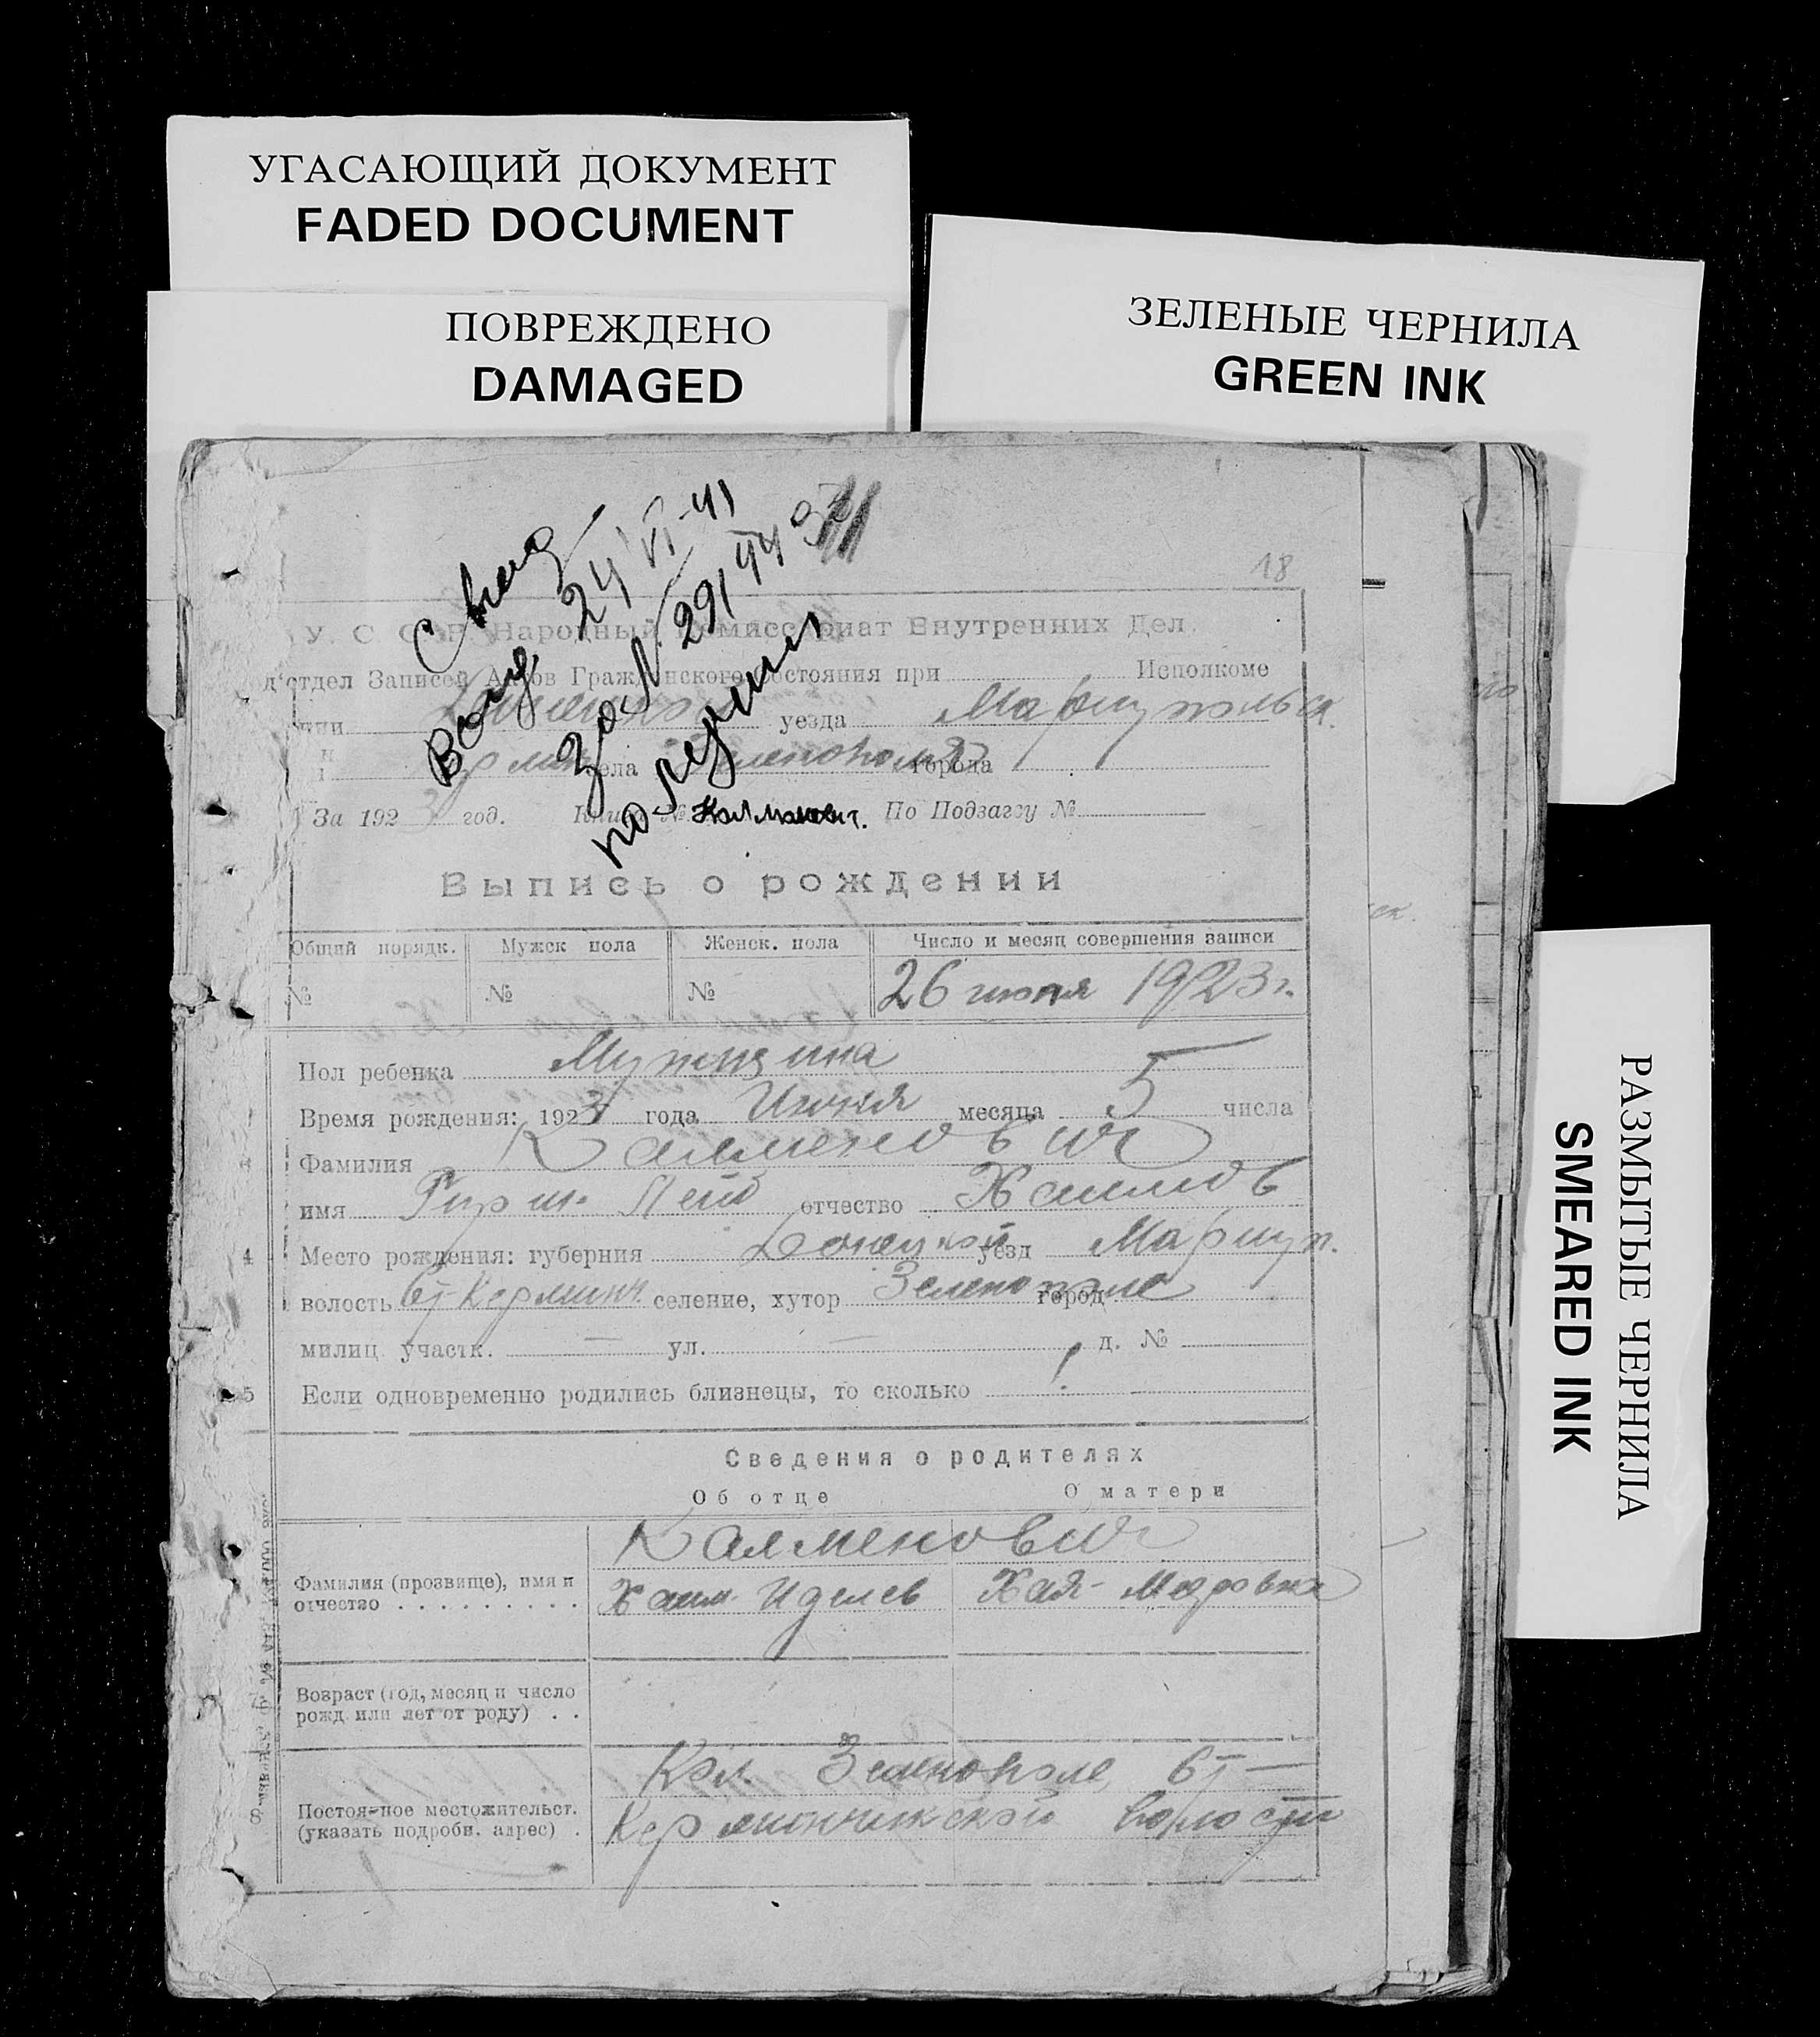 УГАСАЮЩИЙ ДОКУМЕНТ
FADED DOCUMENT
ПОВРЕЖДЕНО
DAMAGED
ЗЕЛЕНЫЕ ЧЕРНИЛА
GREEN INK
РАЗМЫТЫЕ ЧЕРНИЛА
SMEARED INK
24 VI-41
291
18
У. С. С. Р. Народный Комиссариат Внутренних Дел
д'отдел Записей Актов Гражданского Состояния при Исполкоме
уезда Мариупольск.
села Зеленополь города
За 1923 год. Книга № По Подзагсу №
Выпись о рождении
Общий порядк. Мужск пола Женск. пола Число и месяц совершения записи
№ № № 26 июня 1923 г.
Пол ребенка Мущина
Время рождения: 1923 года Июня месяца 5 числа
Фамилия Калменович
имя Гирш. Лейб отчество Хаимов
4 Место рождения: губерния Донецкой уезд Мариуп.
волость Бт-Керминч. селение, хутор Зеленополе город
милиц. участк. — ул. — д. №
5 Если одновременно родились близнецы, то сколько
Сведения о родителях
Об отце О матери
Калменович
Фамилия (прозвище), имя и отчество Хаим Иделев Хая-
Возраст (год, месяц и число
рожд. или лет от роду)
Кол. Зеленополе, Бт-
Постоянное местожительст.
(указать подробн. адрес) Керменчикской волости